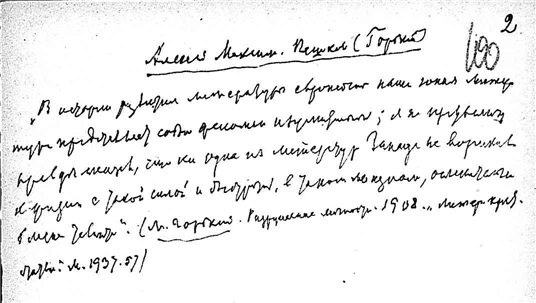 2
100
Алексей Максим. Пешков (Горький)
"В истории развития литературы европейской наша юная литера-
тура представляет собою феномен изумительный; я не преувеличу
правды, сказав, что ни одна из литератур Запада не возникала
к жизни с такой силой и быстротой, в таком
блеске таланта". (М. Горький. Разрушение личности. 1908. "Литер.-крит.
статьи". М. 1937. 57)